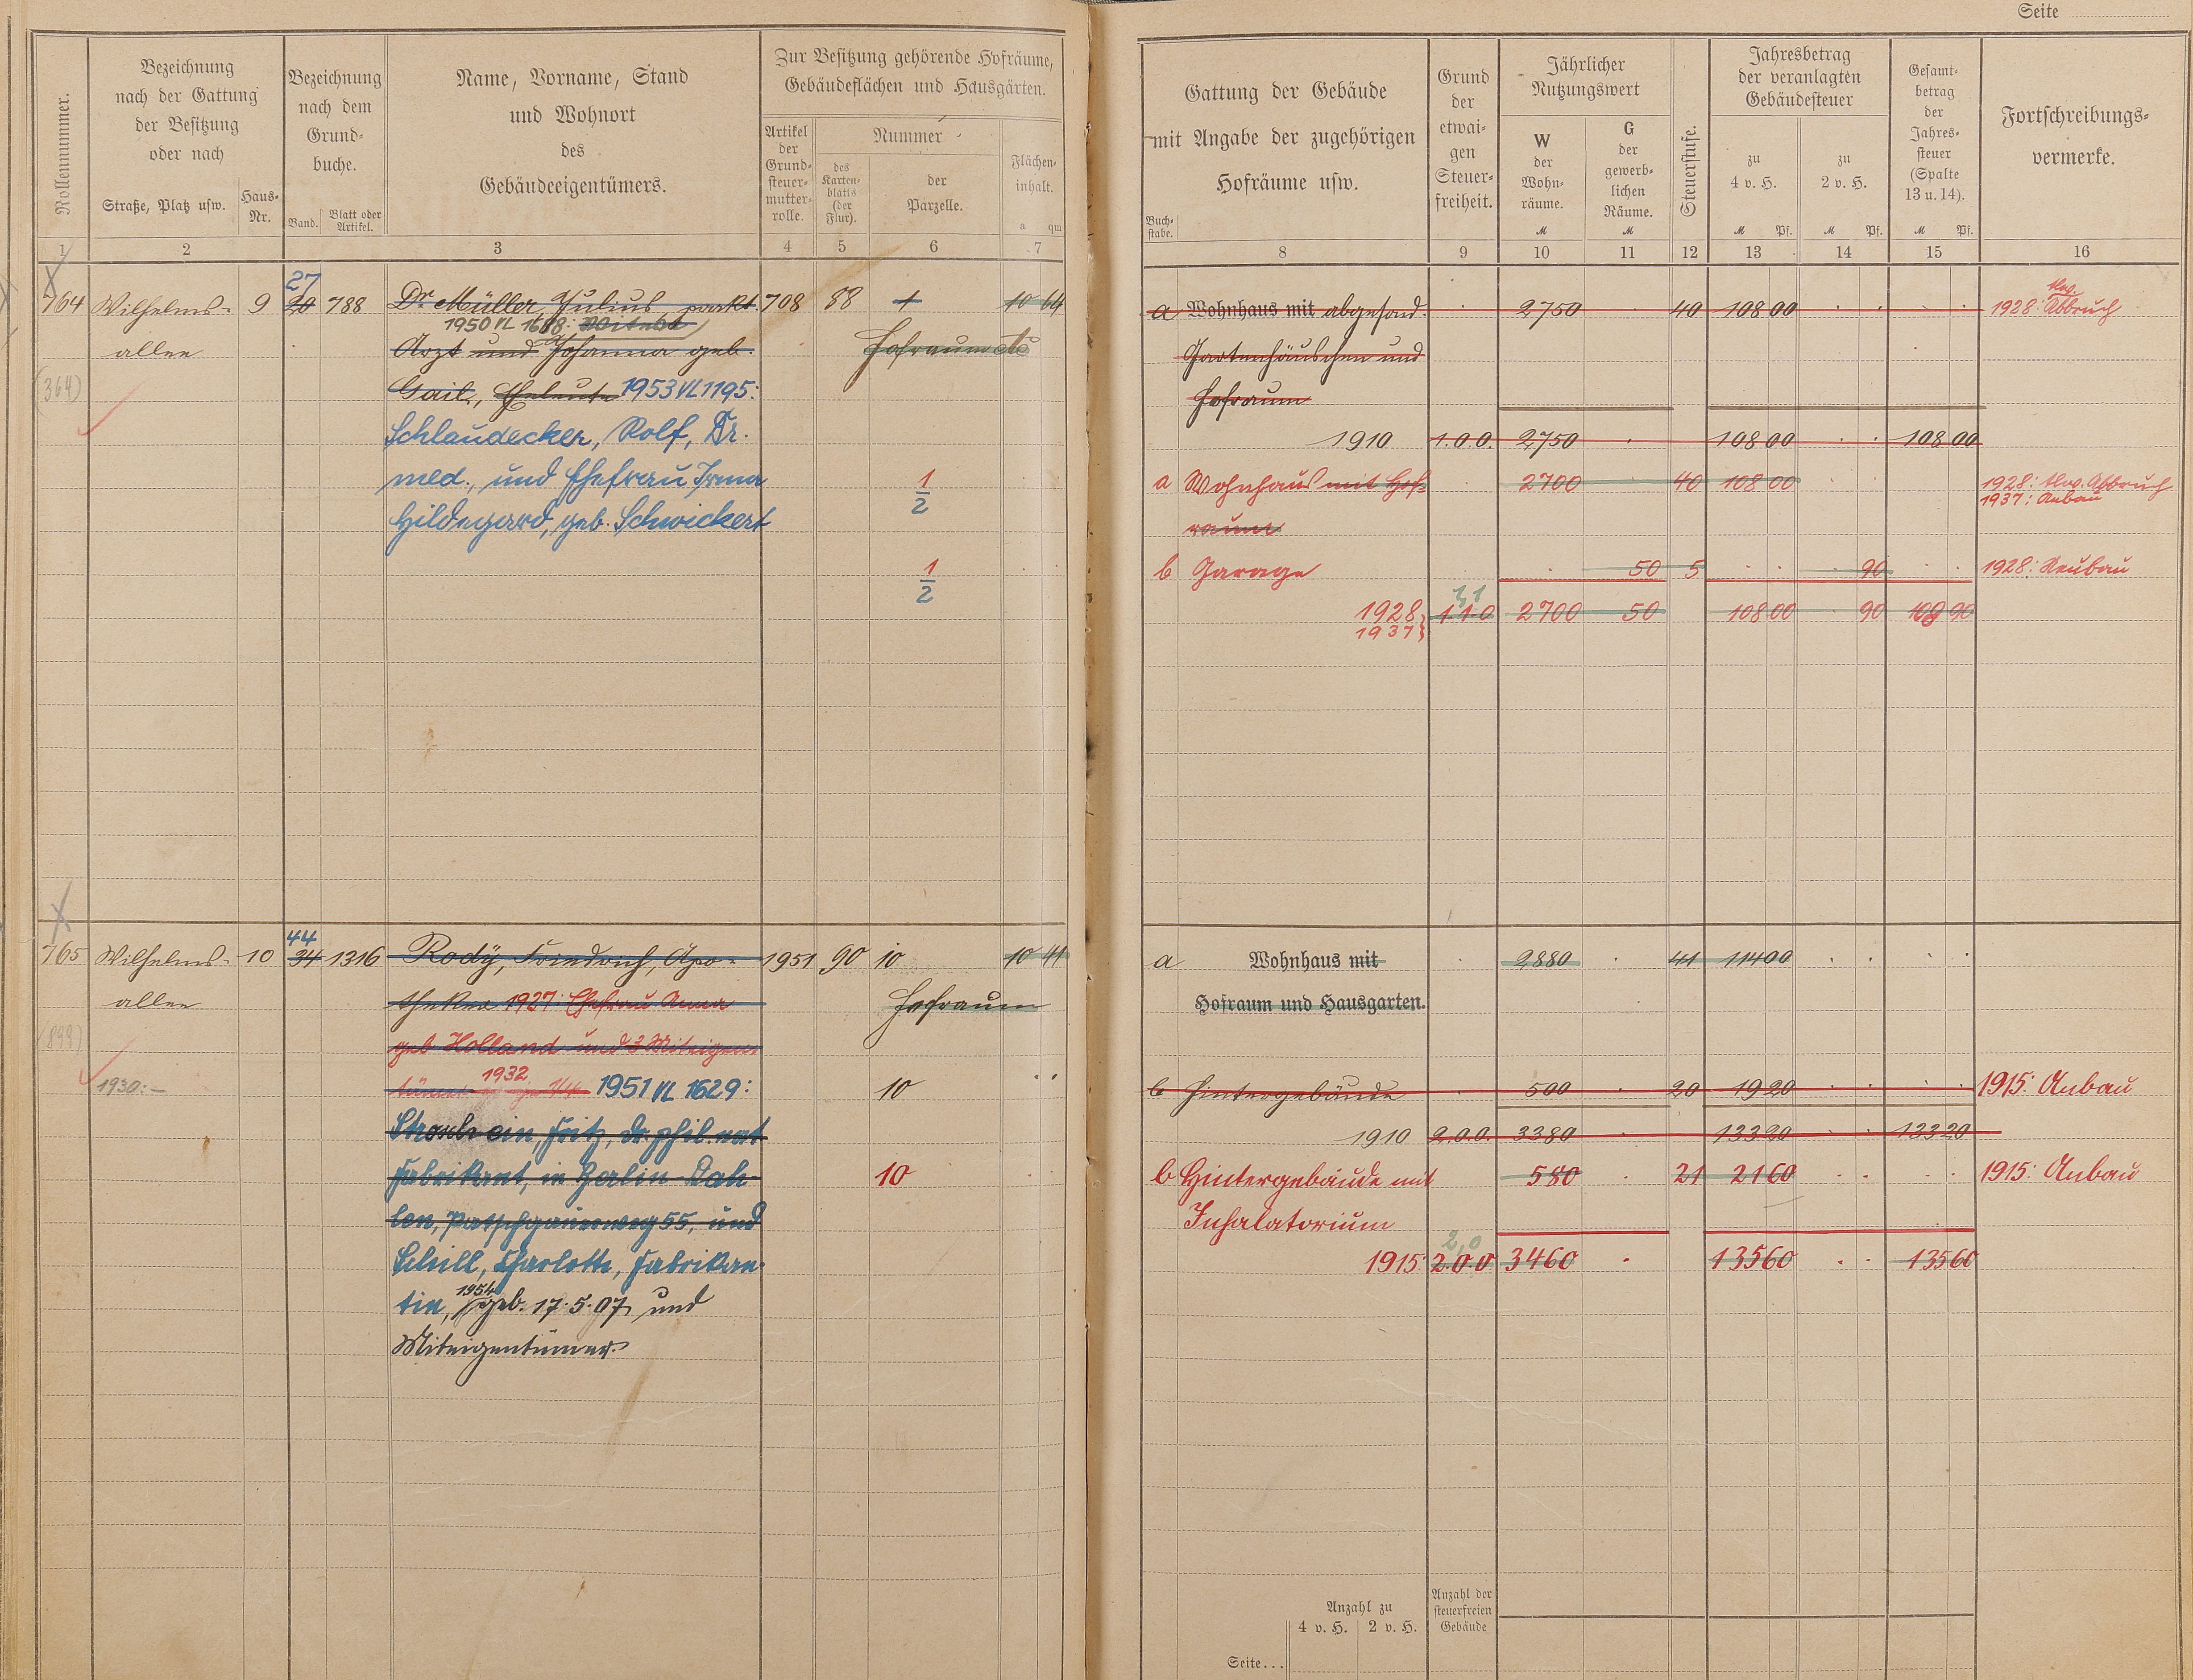 Seite
Rollennummer.
Bezeichnung
nach der Gattung
der Besitzung
oder nach
Straße, Platz usw.
Haus-
Nr.
Bezeichnung
nach dem
Grund-
buche.
Band.
Blatt oder
Artikel.
Name, Vorname, Stand
und Wohnort
des
Gebäudeeigentümers.
Zur Besitzung gehörende Hofräume,
Gebäudeflächen und Hausgärten.
Artikel
der
Grund-
steuer-
mutter-
rolle.
Nummer
des
Karten-
blatts
(der
Flur).
der
Parzelle.
Flächen-
inhalt.
a qm
1 2 3 4 5 6 7
27
764 Wilhelms- 9 20 788 Dr Müller, Julius prakt. 708 88 1 10 64
1950 VL 1688:
allee Arzt und Johanna geb. Hofraum
(364) Gail, Eheleute 1953 VL 1195:
Schlaudecker, Rolf, Dr.
med., und Ehefrau Irma 1/2
Hildegard, geb. Schwickert
1/2
44
765 Wilhelms- 10 34 1316 Rody, Friedrich, Apo- 1951 90 10 10 41
allee theker 1927: Ehefrau Anna Hofraum
(899) geb Holland und 3 Miteigen-
1930:- tümer 1932 1951 VL 1629: 10
Fritz, Dr. phil. nat
Fabrikant, in Berlin-Dah- 10
lem, 55, und
Schill, Charlotte, Fabrikan-
tin, 1954 geb. 17.5.07 und
Miteigentümer.
Gattung der Gebäude
mit Angabe der zugehörigen
Hofräume usw.
Buch-
stabe.
Grund
der
etwai-
gen
Steuer-
freiheit.
Jährlicher
Nutzungswert
W
der
Wohn-
räume.
M
G
der
gewerb-
lichen
Räume.
M
Steuerstufe.
Jahresbetrag
der veranlagten
Gebäudesteuer
zu
4 v. H.
M Pf.
zu
2 v. H.
M Pf.
Gesamt-
betrag
der
Jahres-
steuer
(Spalte
13 u. 14).
M Pf.
Fortschreibungs-
vermerke.
8 9 10 11 12 13 14 15 16
a Wohnhaus mit abgesond. 2750 40 108 00 1928: Abbruch
Gartenhäuschen und
Hofraum
1910 1.0.0. 2750 108 00 108 00
a Wohnhaus mit Hof- 2700 40 108 00 1928: Abbruch
raum 1937: Anbau
b Garage 50 5 90 1928: Neubau
1928 1.1.0 2700 50 108 00 90 108 90
1937
a Wohnhaus mit 2880 41 114 00
Hofraum und Hausgarten.
b Hintergebäude 500 20 19 20 1915: Anbau
1910 2.0.0. 3380 133 20 133 20
b Hintergebäude mit 580 21 21 60 1915: Anbau
Inhalatorium
2,0
1915: 2.0.0 3460 135 60 135 60
Anzahl zu
4 v. H. 2 v. H.
Anzahl der
steuerfreien
Gebäude
Seite...